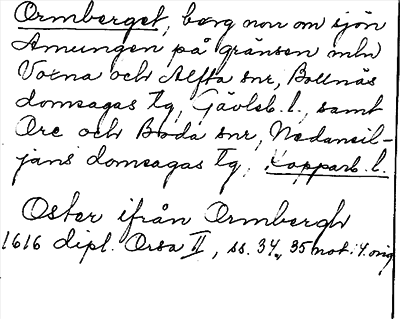 Ormberget, berg norr om sjön
Amungen på gränsen mln
Voxna och Alfta snr, Bollnäs
domsagas tg, Gävleb. l., samt
Ore och Boda snr, Nedansil-
jans domsagas tg, Kopparb. l.
Öster ifrån Ormbergh
1616 dipl. Orsa II, ss. 34, 35 not. 4. orig